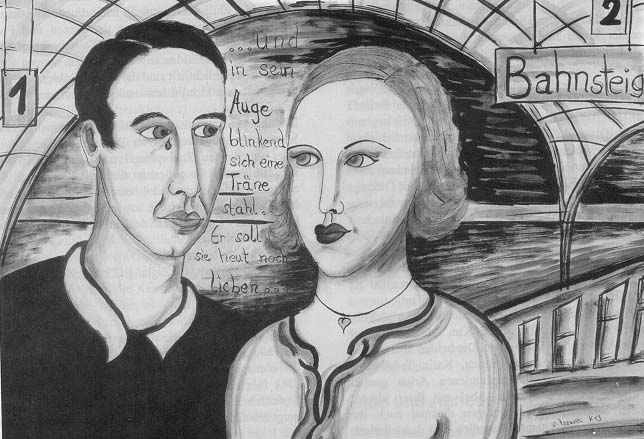 ...und
in sein
Auge
blinkend
sich eine
Träne
stahl.
Er soll
sie heut noch
lieben...
1
2
Bahnsteig